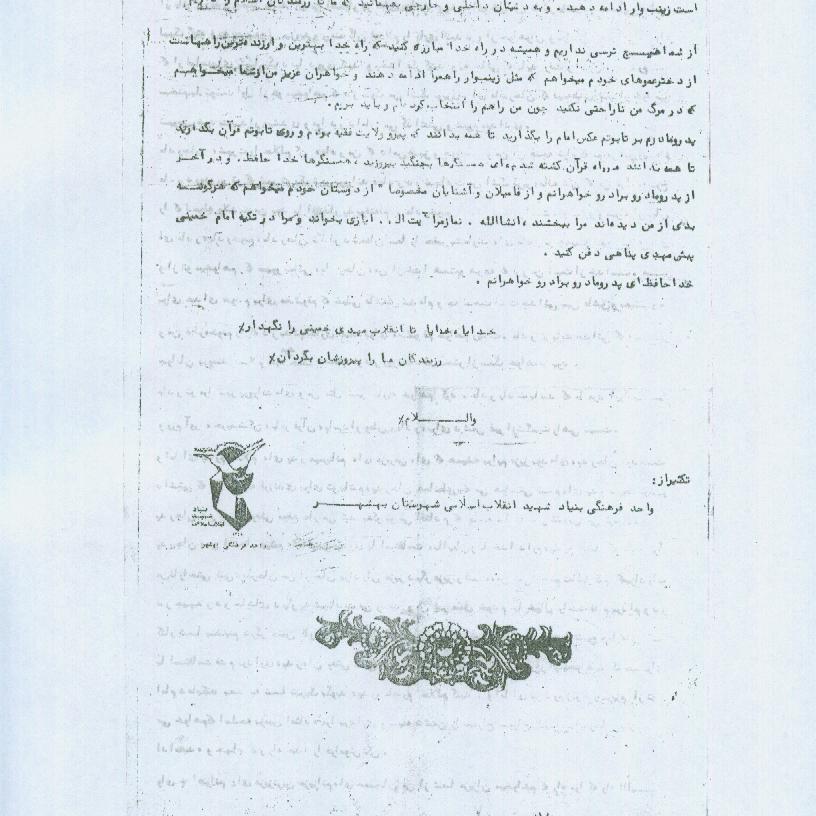 است زینب وار ادامه دهید . و به دشمنان داخلی و خارجی بفهمانید که ما تا
از شما هیچ ترسی نداریم و همیشه در راه خدا مبارزه کنید که راه خدا بهترین و ارزنده ترین راههاست
از دخترعموهای خودم میخواهم که مثل زینب وار راهمرا ادامه دهند و خواهران عزیز من از شما میخواهم
که در مرگ من ناراحتی نکنید چون من راهم را انتخاب کرده‌ام و باید بریم .
پدر و مادرم بر تابوتم عکس امام را بگذارید تا همه بدانند که پیرو ولایت فقیه بودم و روی تابوتم قرآن بگذارید
تا همه بدانند در راه قرآن کشته شدم ، ای همسنگرها بجنگید پیروزید ، همسنگرها خدا حافظ . و در آخر
از پدر و مادر و برادر و خواهرانم و از فامیلان و آشنایان مخصوصا" از دوستان خودم میخواهم که هرگونه
بدی از من دیده‌اند مرا ببخشند ، انشاالله . نماز مرا آیت الله . ایازی بخواند و مرا در تکیه امام خمینی
پیش مهدی پناهی دفن کنید .
خدا حافظ ای پدر و مادر و برادر و خواهرانم .
خدایا ، خدایا تا انقلاب مهدی خمینی را نگهدار٪
رزمندگان ما را پیروزشان بگردان٪
والسلام٪
تکثیر از :
واحد فرهنگی بنیاد شهید انقلاب اسلامی شهرستان بهشهر
بنیاد
شهید
انقلاب اسلامی
واحد فرهنگی بهشهر